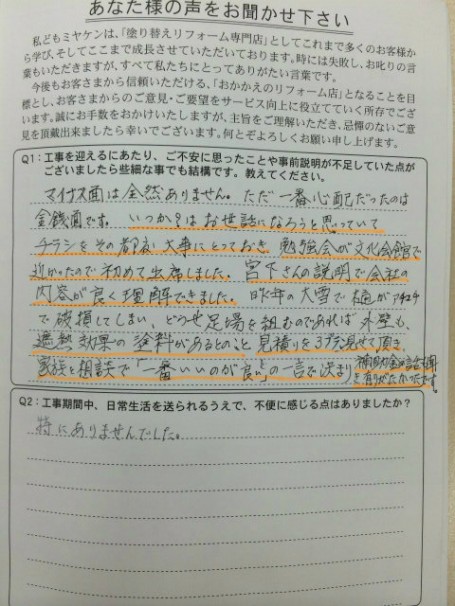 あなた様の声をお聞かせ下さい
私どもミヤケンは、「塗り替えリフォーム専門店」としてこれまで多くのお客様か
ら学び、そしてここまで成長させていただいております。時には失敗し、お叱りの言
葉もいただきますが、すべて私たちにとってありがたい言葉です。
今後もお客さまから信頼いただける、「おかかえのリフォーム店」となることを目
標とし、お客さまからのご意見・ご要望をサービス向上に役立てていく所存でござ
います。誠にお手数をおかけいたしますが、主旨をご理解いただき、忌憚のないご意
見を頂戴出来ましたら幸いでございます。何とぞよろしくお願い申し上げます。
Q1：工事を迎えるにあたり、ご不安に思ったことや事前説明が不足していた点が
ございましたら些細な事でも結構です。教えてください。
マイナス面は全然ありません。ただ一番心配だったのは
金銭面です。いつかはお世話になろうと思っていて
チラシをその都度大事にとっておき 勉強会が文化会館で
近かったので初めて出席しました。宮下さんの説明で会社の
内容が良く理解できました。昨年の大雪で樋がアチコチ
で破損してしまい、どうせ足場を組むのであれば外壁も、
遮熱効果の塗料があるとのこと見積りを3プラン見せて頂き、
家族と相談で「一番いいのが良い」との一言で決まり
Q2：工事期間中、日常生活を送られるうえで、不便に感じる点はありましたか？
特にありませんでした。